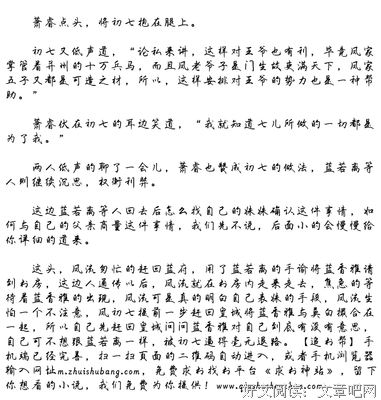 萧睿点头，将初七抱在腿上。
初七又低声道，“论私来讲，这样对王爷也有利，毕竟风家
掌管着并州的十万兵马，而且风老爷子是门生故吏满天下，风家
五子又都是可造之材，所以，这样安排对王爷的势力也是一种帮
助。”
萧睿伏在初七的耳边笑道，“我就知道七儿所做的一切都是
为了我。”
两人低声的聊了一会儿，萧睿也赞成初七的做法，蓝若离等
人则继续沉思，权衡利弊。
这边蓝若离等人回去后怎么找自己的妹妹确认这件事情，如
何与自己的父亲商量这件事情，我们先不说，后面小的会慢慢给
你详细的道来。
这头，风流匆忙的赶回蓝府，用了蓝若离的手谕将蓝香雅请
到书房，这边人通传以后，风流就在书房内走来走去，焦急的等
待着蓝香雅的出现，风流可是真的明白自己表妹的手段，风流生
怕一个不注意，初七提前一步赶回皇城将蓝香雅与莫白撮合在
一起，所以自己先赶回皇城问问蓝香雅对自己到底有没有意思，
自己可不想跟蓝若离一样，被初七逼得毫无退路。【追书帮】手
机端已经完善，扫一扫页面的二维码自动进入，或者手机浏览器
输入网址m.zhuishubang.com，免费求书找书平台《求书神站》，留下
你想看的小说，我们免费为你提供！www.qiushuzhan.com
好文阅读：文章吧网